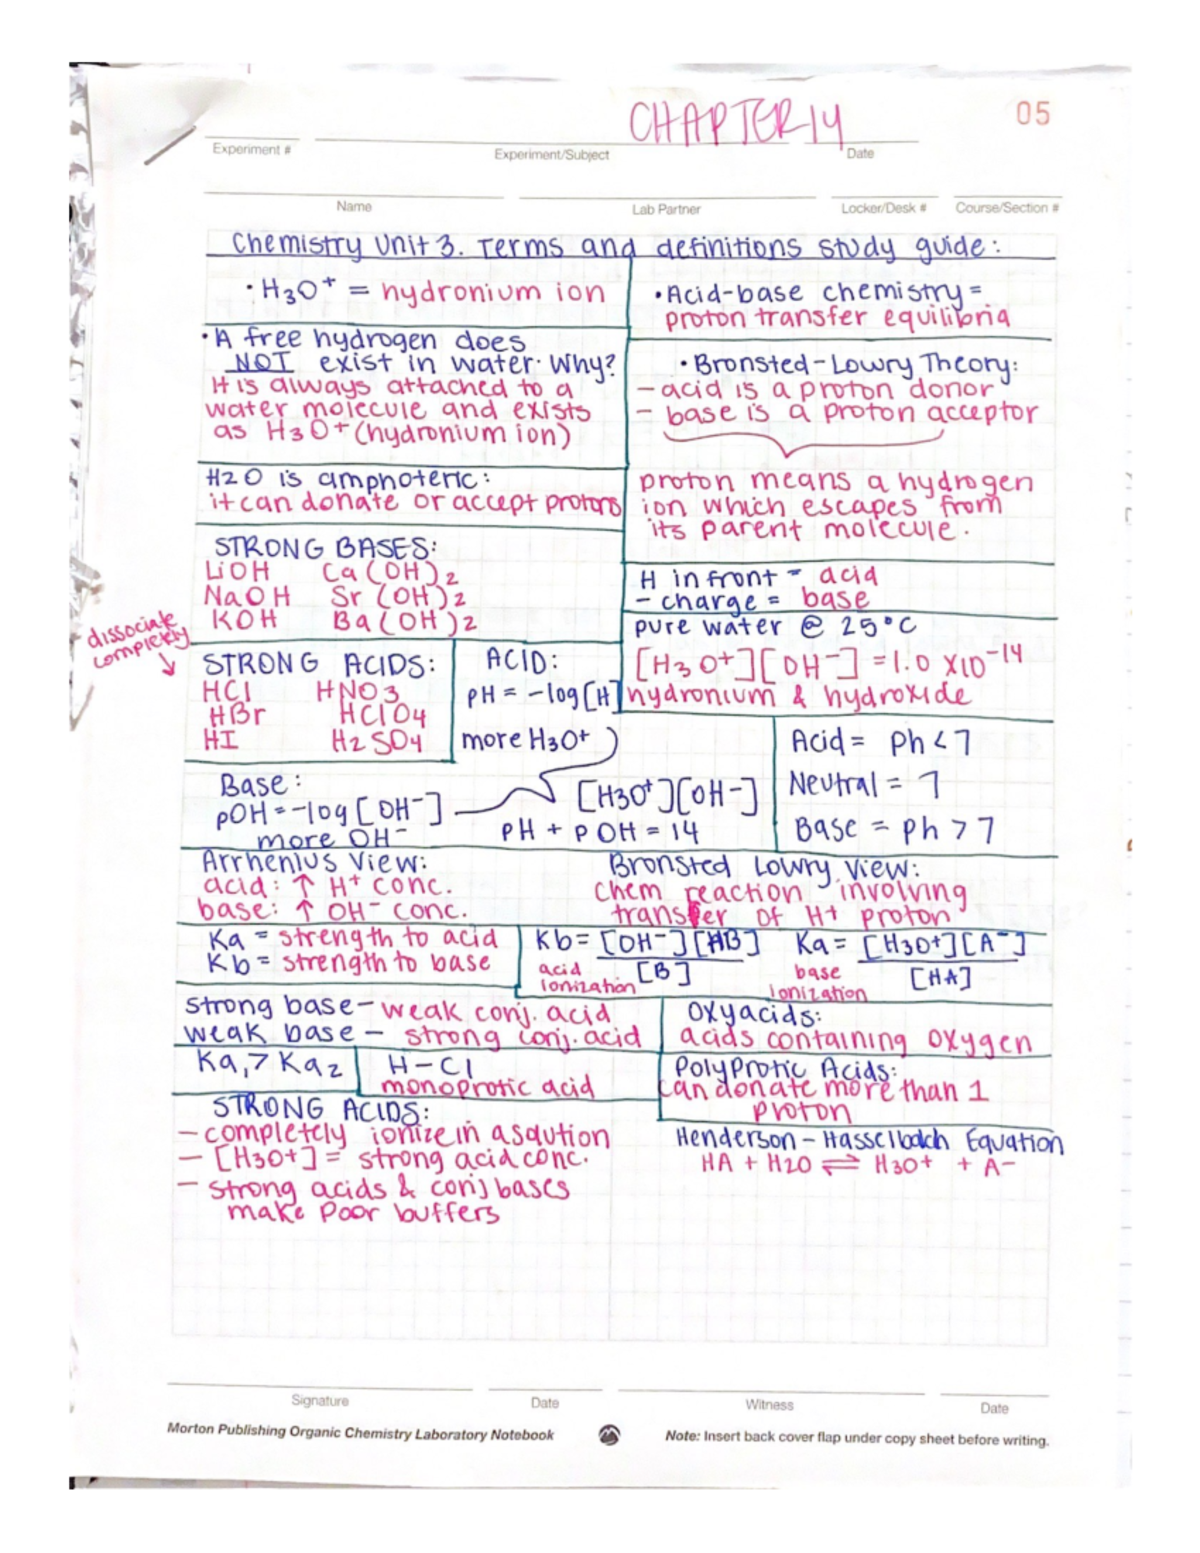 CHAPTER 14
05
Experiment #
Experiment/Subject
Date
Name
Lab Partner
Locker/Desk #
Course/Section #
Chemistry Unit 3. Terms and definitions study guide:
• H3O+ = hydronium ion
• A free hydrogen does
NOT exist in water. Why?
It is always attached to a
water molecule and exists
as H3O+ (hydronium ion)
H2O is amphoteric:
it can donate or accept protons
STRONG BASES:
LiOH Ca(OH)2
NaOH Sr(OH)2
KOH Ba(OH)2
dissociate
completely
• Acid-base chemistry =
proton transfer equilibria
• Bronsted-Lowry Theory:
- acid is a proton donor
- base is a proton acceptor
proton means a hydrogen
ion which escapes from
its parent molecule.
H in front = acid
- charge = base
pure water @ 25°C
[H3O+][OH-] = 1.0 x10-14
hydronium & hydroxide
STRONG ACIDS:
HCl HNO3
HBr HClO4
HI H2SO4
ACID:
pH = -log[H]
more H3O+
Base:
pOH = -log[OH-]
more OH-
[H3O+][OH-]
pH + pOH = 14
Acid = ph < 7
Neutral = 7
Base = ph > 7
Arrhenius View:
acid: ↑ H+ conc.
base: ↑ OH- conc.
Bronsted Lowry View:
chem reaction involving
transfer of H+ proton
Ka = strength to acid
Kb = strength to base
Kb = [OH-][HB]
[B]
acid
ionization
Ka = [H3O+][A-]
[HA]
base
ionization
strong base - weak conj. acid
weak base - strong conj. acid
Oxyacids:
acids containing oxygen
Ka1 > Ka2
H-Cl
monoprotic acid
PolyProtic Acids:
can donate more than 1
proton
STRONG ACIDS:
- completely ionize in a solution
- [H3O+] = strong acid conc.
- strong acids & conj bases
make poor buffers
Henderson-Hasselbach Equation
HA + H2O ⇌ H3O+ + A-
Signature
Date
Witness
Date
Morton Publishing Organic Chemistry Laboratory Notebook
Note: Insert back cover flap under copy sheet before writing.